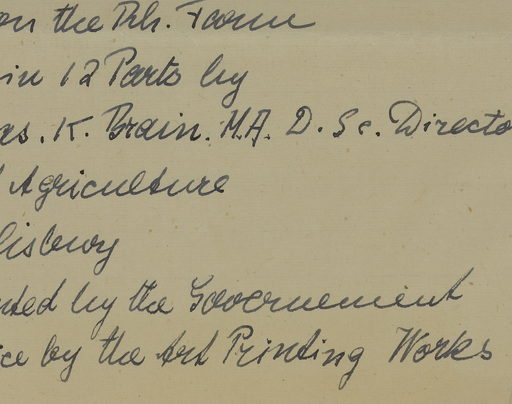 on the Rh. Farm
in 12 Parts by
as. K. Brain. M.A. D. Sc. Directo
Agriculture
lisbury
nted by the Governement
ice by the Art Printing Works